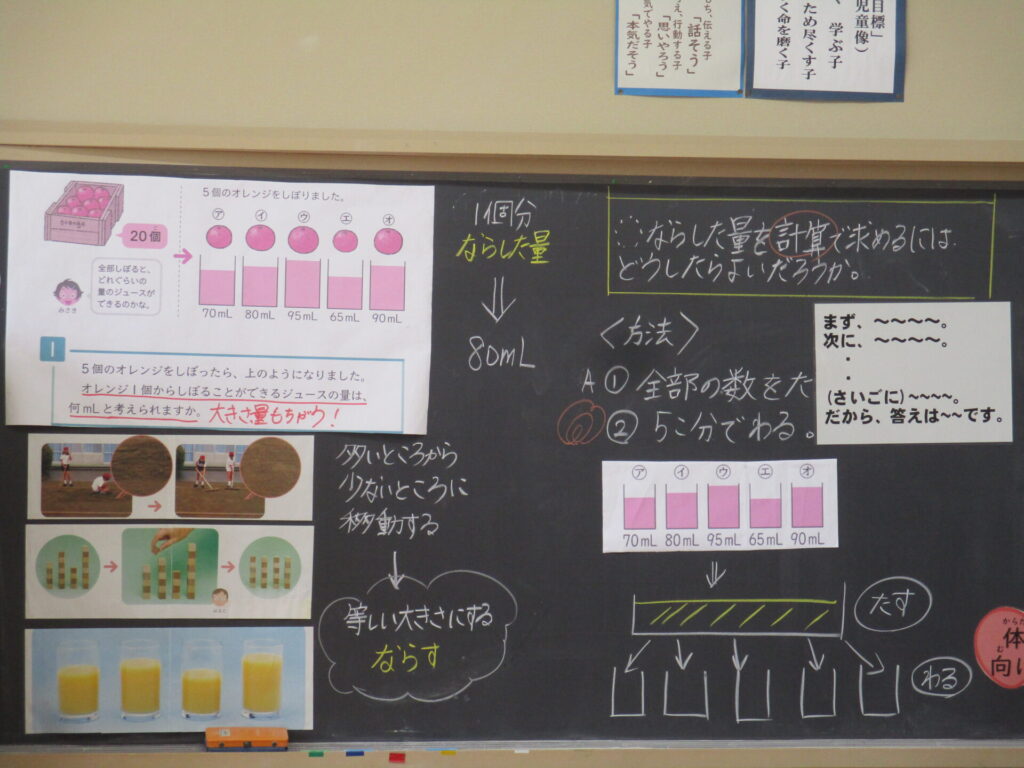 目標」
児童像）
、学ぶ子
ため尽くす子
く命を磨く子
ち、伝える子
「話そう」
え、行動する子
「思いやろう」
気でやる子
「本気だそう」
20個
5個のオレンジをしぼりました。
㋐ ㋑ ㋒ ㋓ ㋔
70mL 80mL 95mL 65mL 90mL
全部しぼると、
どれぐらいの
量のジュースが
できるのかな。
みさき
1
5個のオレンジをしぼったら、上のようになりました。
オレンジ1個からしぼることができるジュースの量は、
何mLと考えられますか。大きさ量もちがう！
多いところから
少ないところに
移動する
等しい大きさにする
ならす
1個分
ならした量
80mL
ならした量を計算で求めるには
どうしたらよいだろうか。
〈方法〉
A ① 全部の数をた
② 5こ分でわる。
まず、～～～～。
次に、～～～～。
・
・
(さいごに)～～～～。
だから、答えは～～です。
㋐ ㋑ ㋒ ㋓ ㋔
70mL 80mL 95mL 65mL 90mL
たす
わる
からだ
体
む
向け